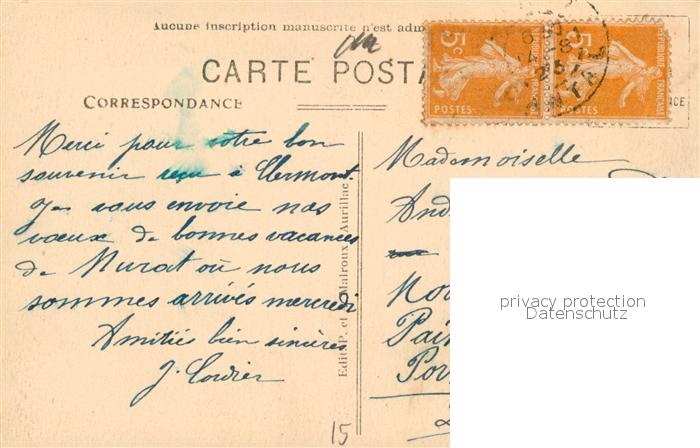 Aucune inscription manuscrite n'est adm
CARTE POSTA
CORRESPONDANCE
5c 5c
POSTES POSTES
Merci pour votre bon
souvenir reçu à Clermont.
Je vous envoie nos
vœux de bonnes vacances
de Murat où nous
sommes arrivés mercredi
Amitiés bien sincères
J. Cordier
Edit. P. et Malroux, Aurillac
Mademoiselle
And
Pai
15
privacy protection
Datenschutz